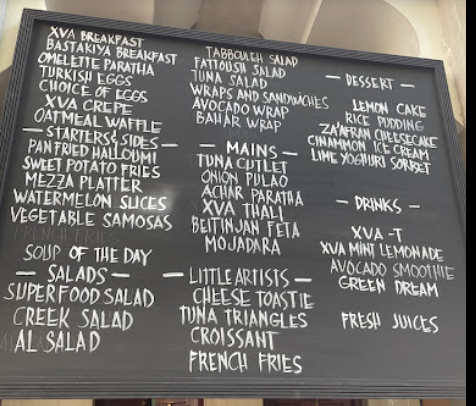 XVA BREAKFAST
BASTAKIYA BREAKFAST
OMELETTE PARATHA
TURKISH EGGS
CHOICE OF EGGS
XVA CREPE
OATMEAL WAFFLE
— STARTERS & SIDES —
PAN FRIED HALLOUMI
SWEET POTATO FRIES
MEZZA PLATTER
WATERMELON SLICES
VEGETABLE SAMOSAS
FRENCH FRIES
SOUP OF THE DAY
— SALADS —
SUPERFOOD SALAD
CREEK SALAD
AL SALAD
TABBOULEH SALAD
FATTOUSH SALAD
TUNA SALAD
WRAPS AND SANDWICHES
AVOCADO WRAP
BAHAR WRAP
— MAINS —
TUNA CUTLET
ONION PULAO
ACHAR PARATHA
XVA THALI
BEITINJAN FETA
MOJADARA
— LITTLE ARTISTS —
CHEESE TOASTIE
TUNA TRIANGLES
CROISSANT
FRENCH FRIES
— DESSERT —
LEMON CAKE
RICE PUDDING
ZA'AFRAN CHEESECAKE
CINAMMON ICE CREAM
LIME YOGHURT SORBET
— DRINKS —
XVA-T
XVA MINT LEMONADE
AVOCADO SMOOTHIE
GREEN DREAM
FRESH JUICES